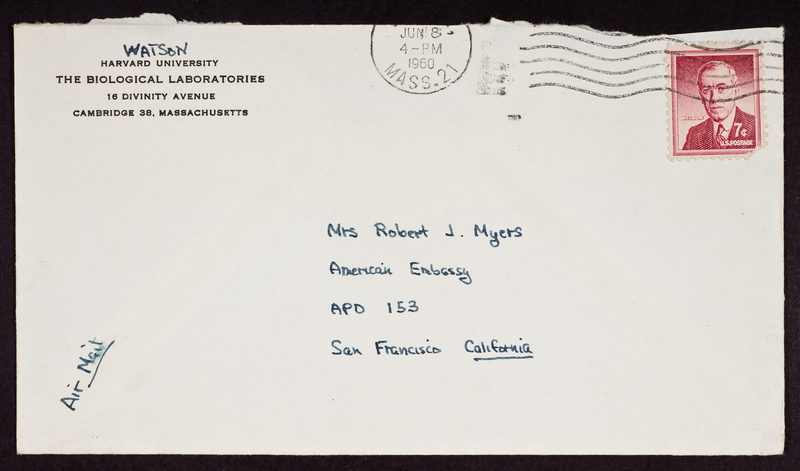 WATSON
HARVARD UNIVERSITY
THE BIOLOGICAL LABORATORIES
16 DIVINITY AVENUE
CAMBRIDGE 38, MASSACHUSETTS
JUN 8
4-PM
1960
MASS. 21
WILSON
7¢
U.S. POSTAGE
Mrs Robert J. Myers
American Embassy
APO 153
San Francisco California
Air Mail